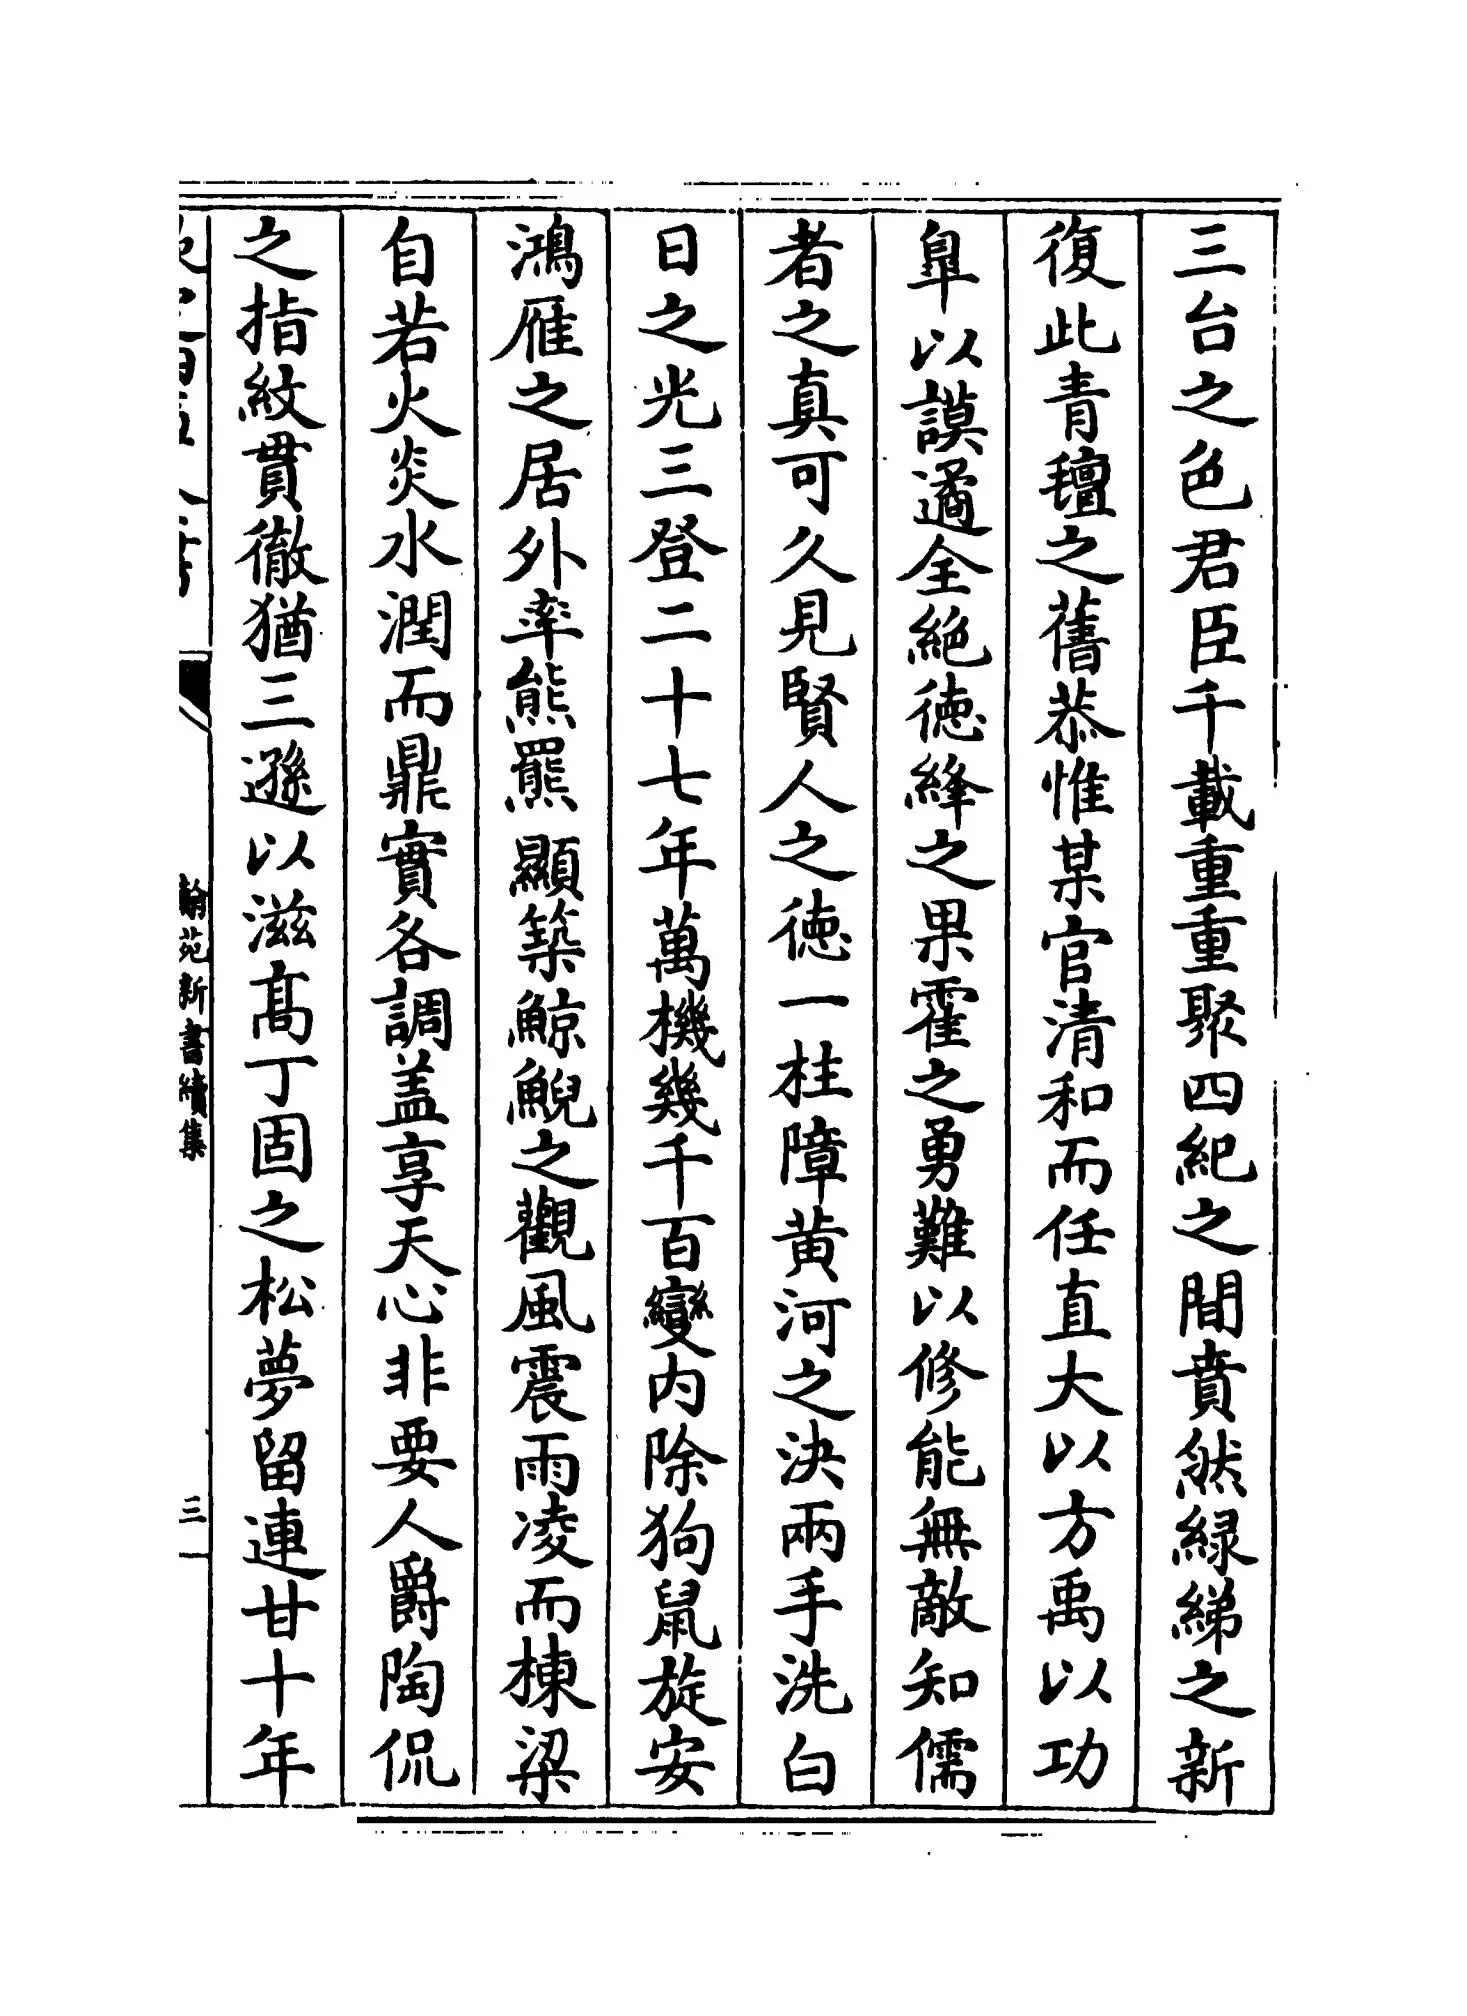 三台之色君臣千載重重聚四紀之間賁然緑綈之新
復此青氊之舊恭惟某官清和而任直大以方禹以功
臯以謨遹全絶徳絳之果霍之勇難以修能無敵知儒
者之真可久見賢人之徳一柱障黄河之決兩手洗白
日之光三登二十七年萬機幾千百變内除狗䑕旋安
鴻雁之居外率熊羆顯築鯨鯢之觀風震雨凌而棟梁
自若火炎水潤而鼎實各調盖享天心非要人爵陶侃
之指紋貫徹猶三遜以滋髙丁固之松夢留連甘十年
翰苑新書續集
三